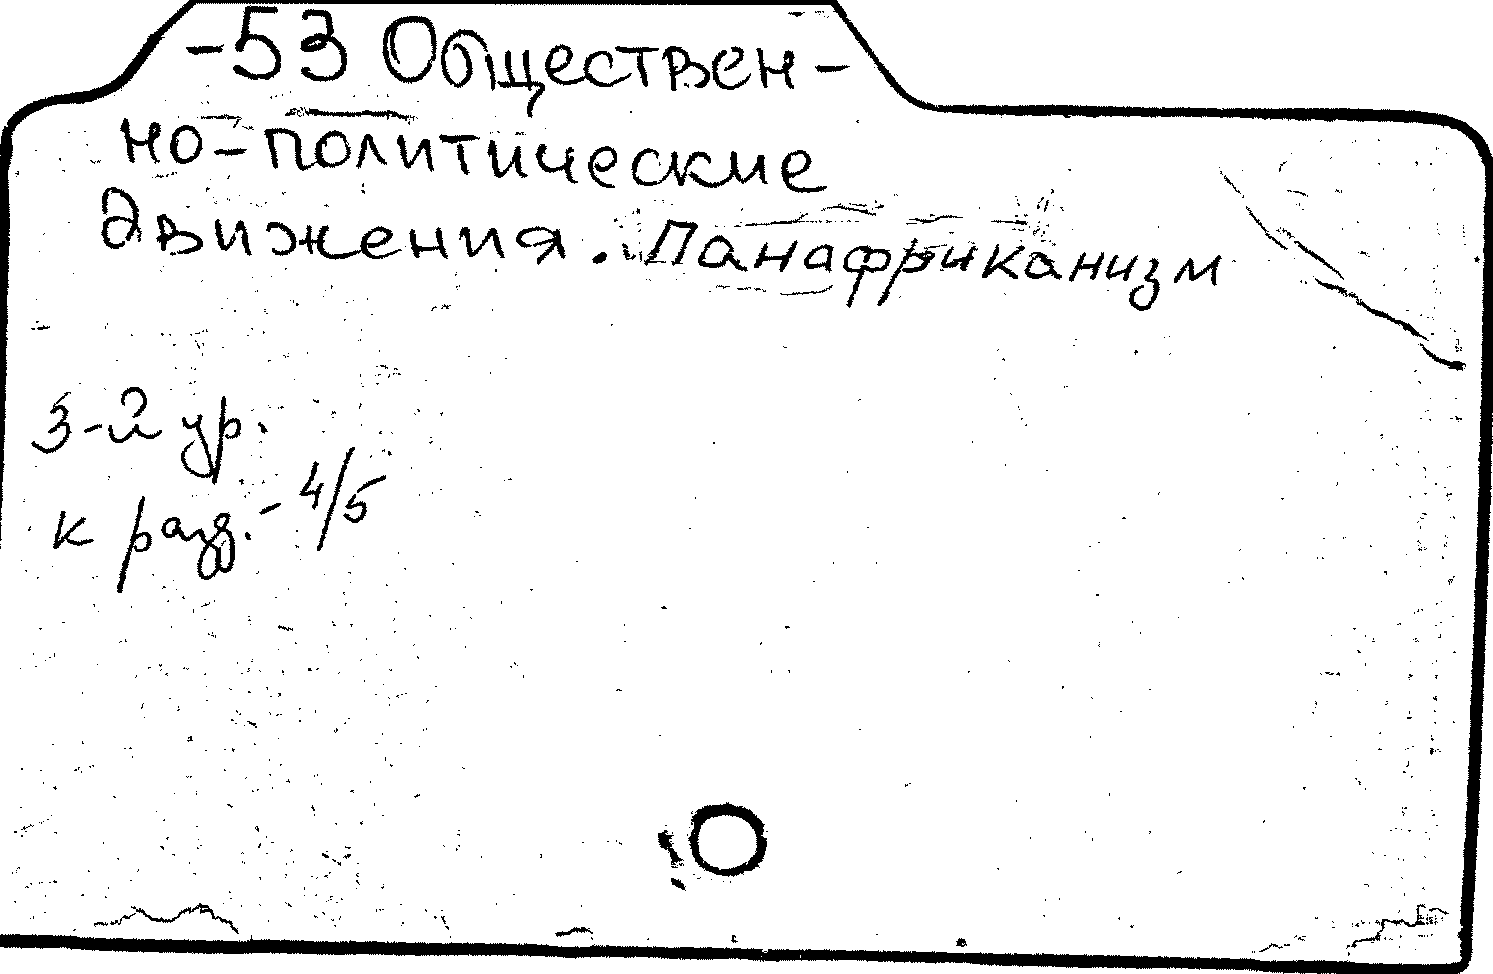 -53 Обществен-
но-политические
движения. Панафриканизм
3-й ур.
к разд. - 4/5